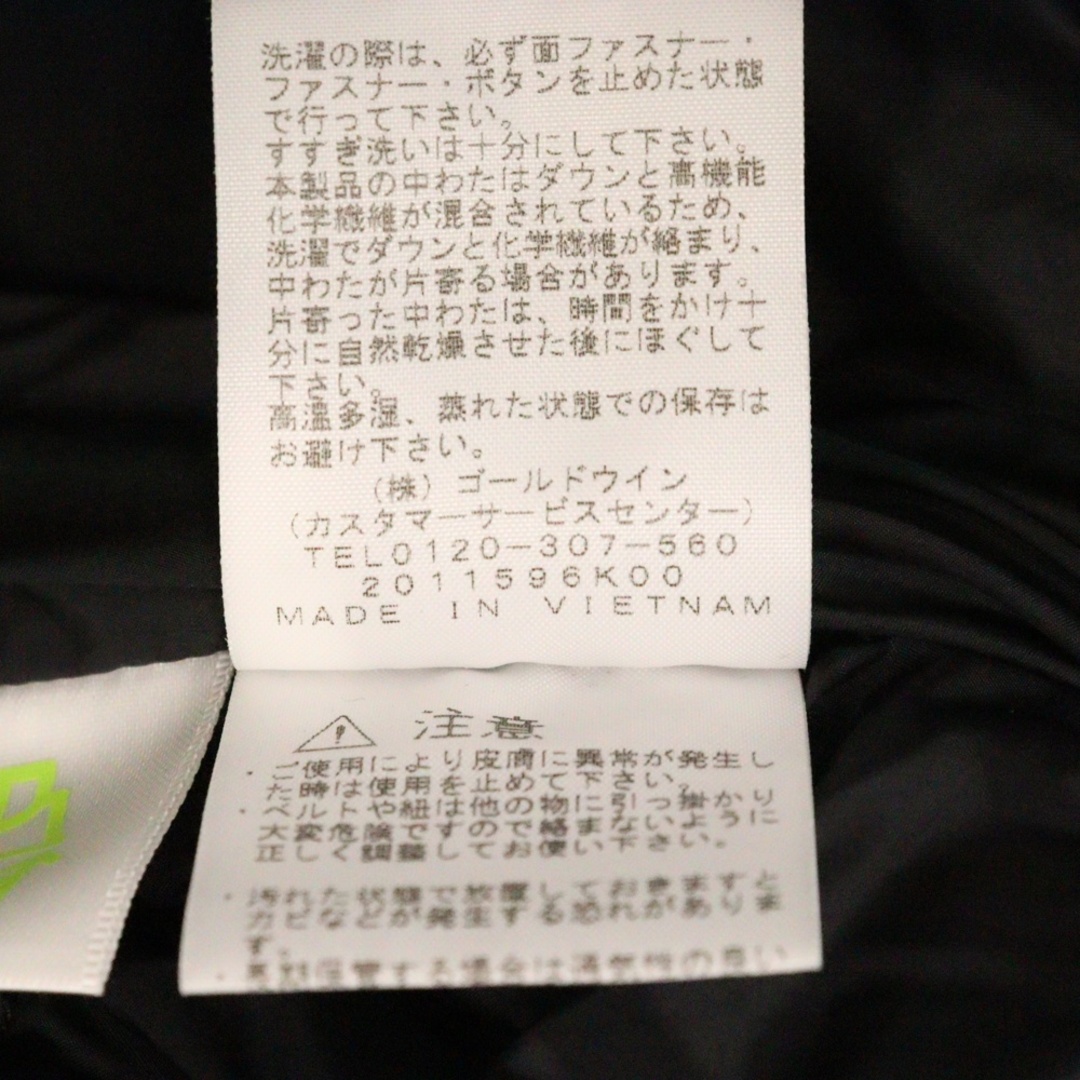 洗濯の際は、必ず面ファスナー・
ファスナー・ボタンを止めた状態
で行って下さい。
すすぎ洗いは十分にして下さい。
本製品の中わたはダウンと高機能
化学繊維が混合されているため、
洗濯でダウンと化学繊維が絡まり、
中わたが片寄る場合があります。
片寄った中わたは、時間をかけ十
分に自然乾燥させた後にほぐして
下さい。
高温多湿、蒸れた状態での保存は
お避け下さい。
(株) ゴールドウイン
(カスタマーサービスセンター)
TEL0120-307-560
2011596K00
MADE IN VIETNAM
注意
・ご使用により皮膚に異常が発生し
た時は使用を止めて下さい。
・ベルトや紐は他の物に引っ掛かり
大変危険ですので絡まないように
正しく調整してお使い下さい。
・汚れた状態で放置しておきますと
カビなどが発生する恐れがありま
す。
・長期保管する場合は通気性の良い